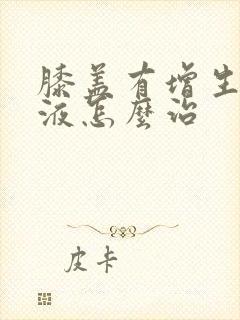 膝盖有增生
液怎麼治
皮卡